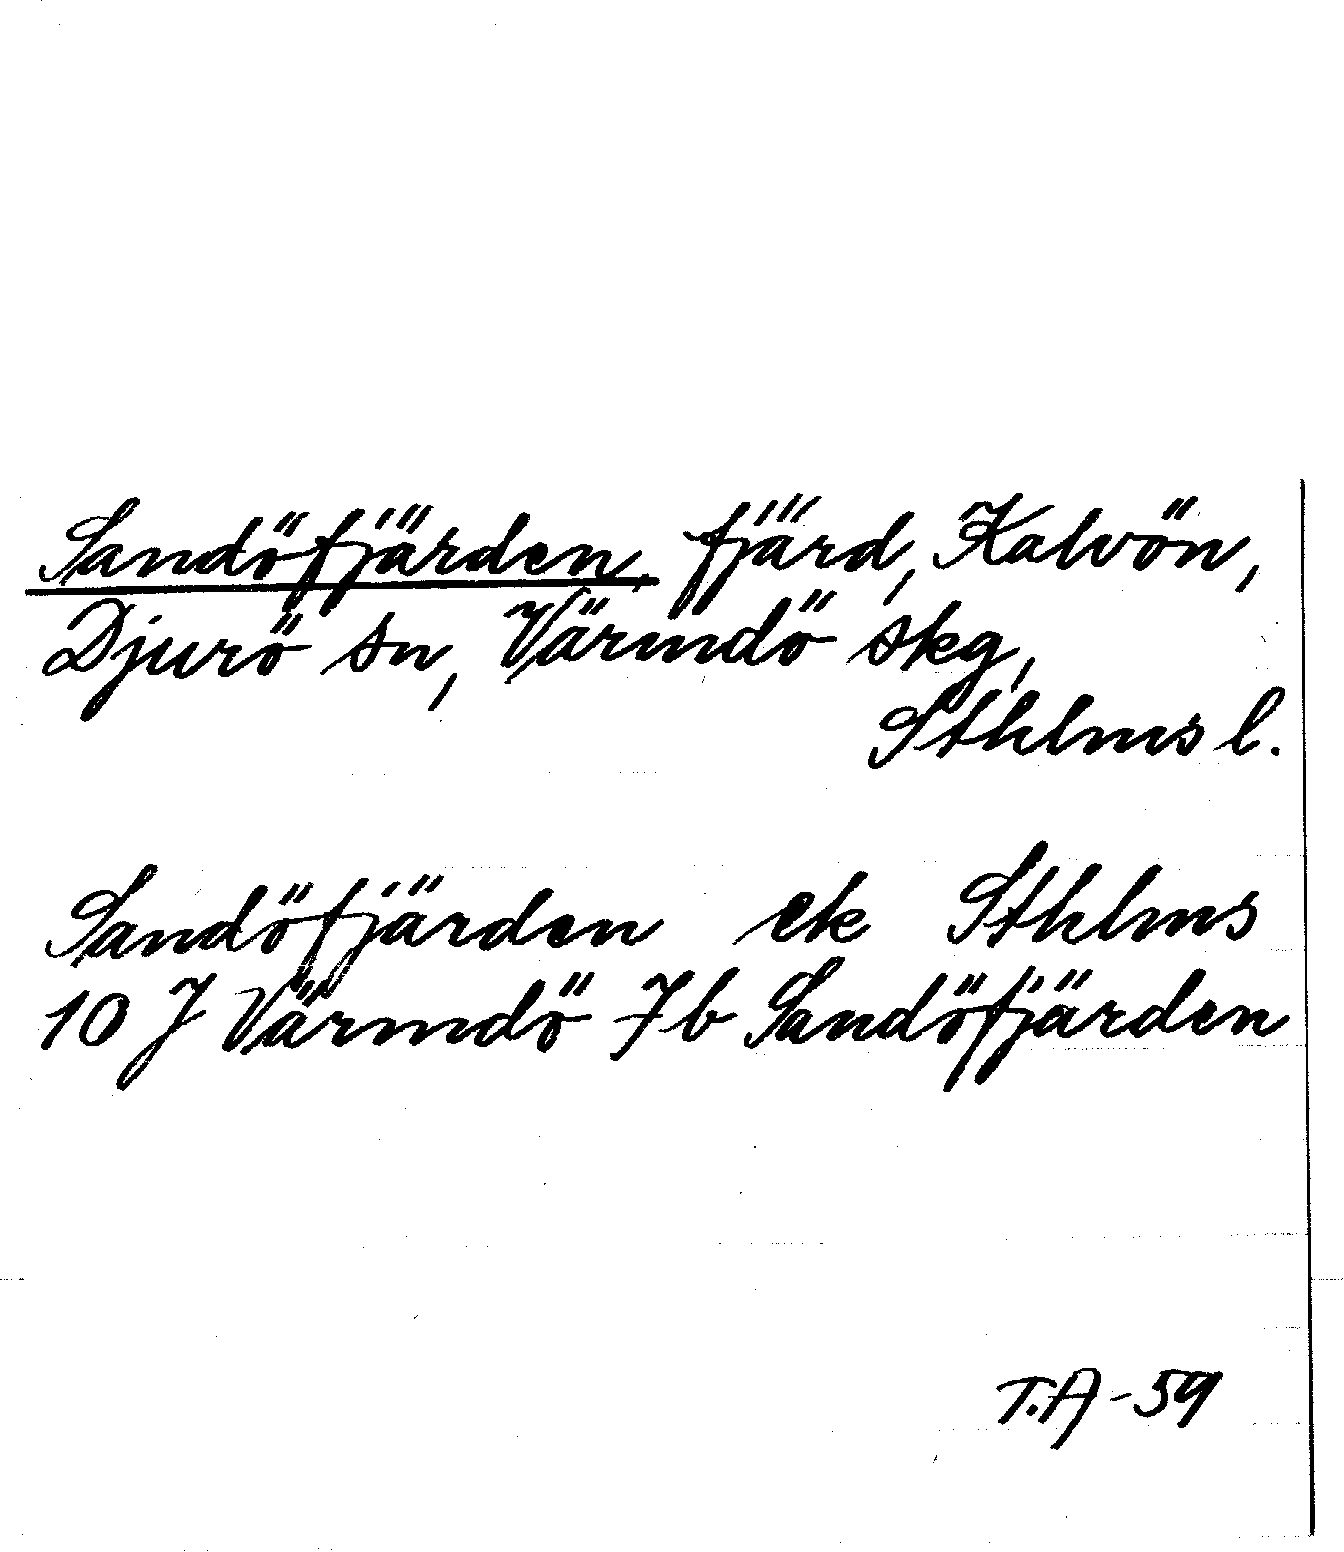 Sandöfjärden, fjärd, Kalvön,
Djurö sn, Värmdö skg,
Sthlms l.
Sandöfjärden ek Sthlms
10 J Värmdö 7b Sandöfjärden
T.A-59